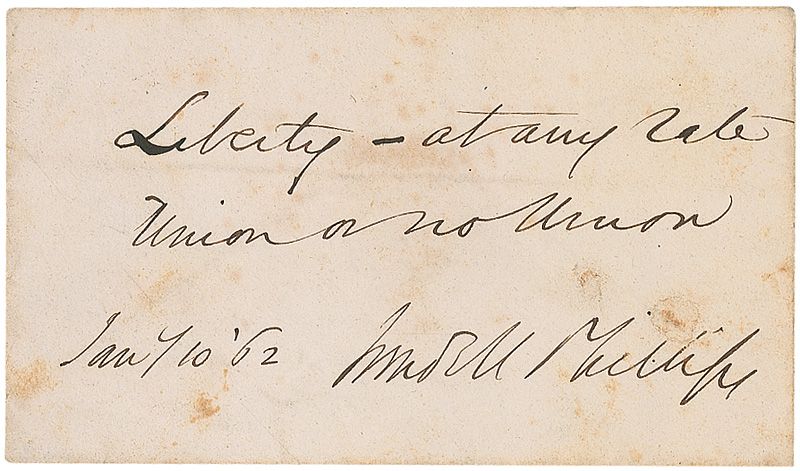 Liberty – at any rate
Union or no Union
Jany 10 '62 Wendell Phillips